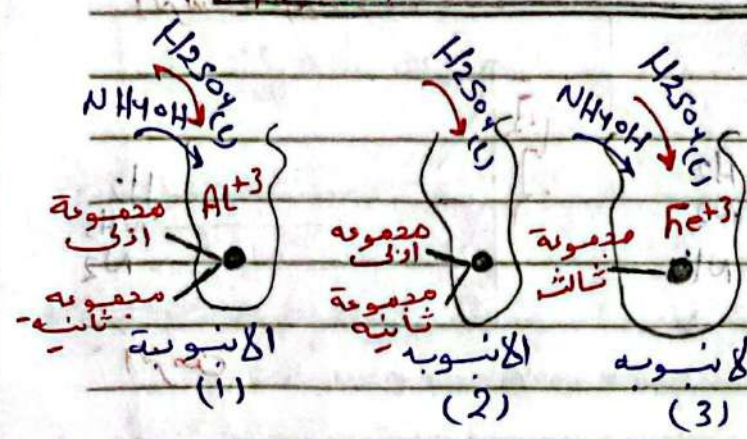 H2SO4(L)
NH4OH
Al+3
مجموعة
اولى
مجموعه
ثانية
الانبوبة
(1)
H2SO4(L)
مجموعه
اولى
مجموعة
ثانيه
الانبوبه
(2)
H2SO4(L)
NH4OH
Fe+3
مجموعة
ثالث
الانبوبه
(3)